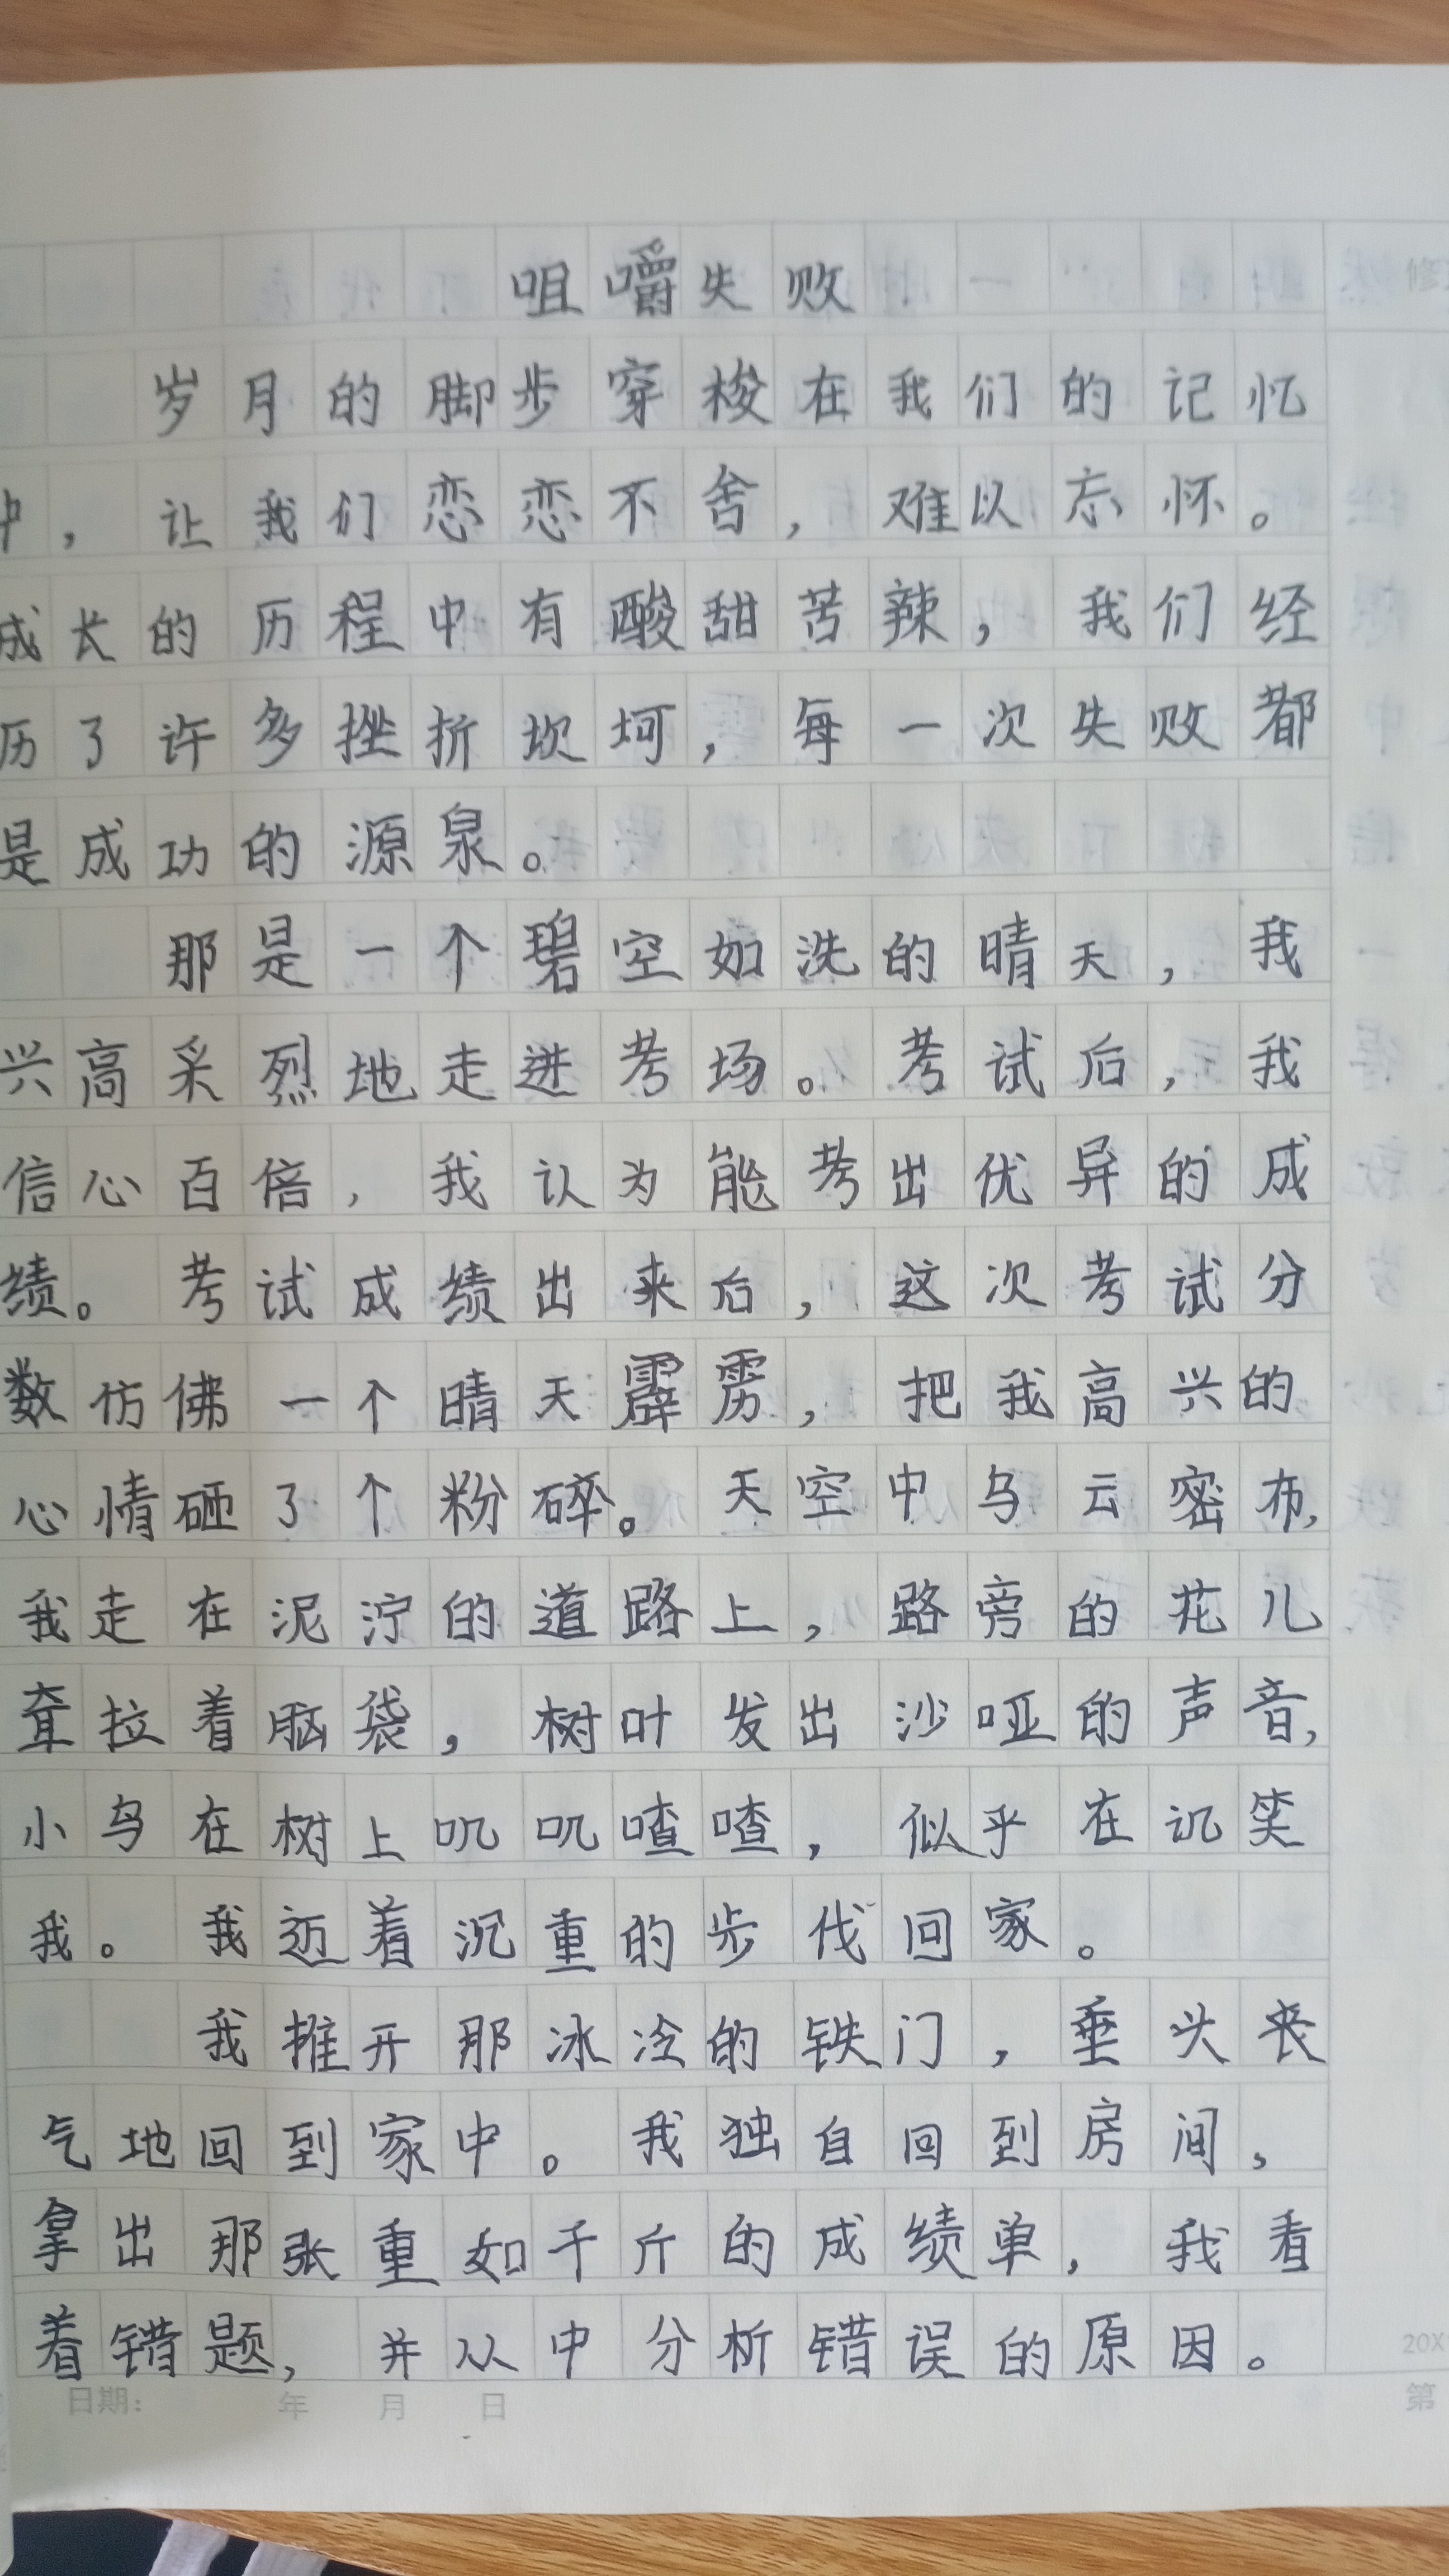 咀嚼失败
岁月的脚步穿梭在我们的记忆
中，让我们恋恋不舍，难以忘怀。
成长的历程中有酸甜苦辣，我们经
历了许多挫折坎坷，每一次失败都
是成功的源泉。
那是一个碧空如洗的晴天，我
兴高采烈地走进考场。考试后，我
信心百倍，我认为能考出优异的成
绩。考试成绩出来后，这次考试分
数仿佛一个晴天霹雳，把我高兴的
心情砸了个粉碎。天空中乌云密布，
我走在泥泞的道路上，路旁的花儿
耷拉着脑袋，树叶发出沙哑的声音，
小鸟在树上叽叽喳喳，似乎在讥笑
我。我迈着沉重的步伐回家。
我推开那冰冷的铁门，垂头丧
气地回到家中。我独自回到房间，
拿出那张重如千斤的成绩单，我看
着错题，并从中分析错误的原因。
日期： 年 月 日
20X
第